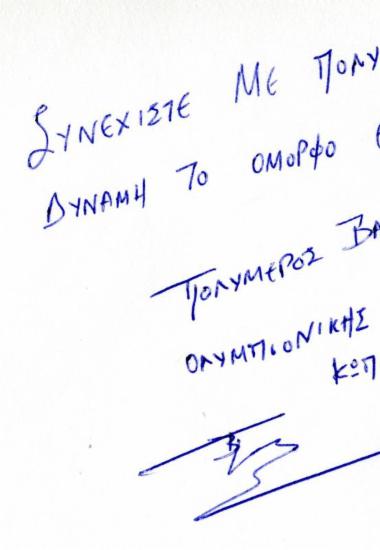 ΣΥΝΕΧΙΣΤΕ ΜΕ ΠΟΛΥ
ΔΥΝΑΜΗ ΤΟ ΟΜΟΡΦΟ
ΠΟΛΥΜΕΡΟΣ ΒΑ
ΟΛΥΜΠΙΟΝΙΚΗΣ
ΚΩΠ